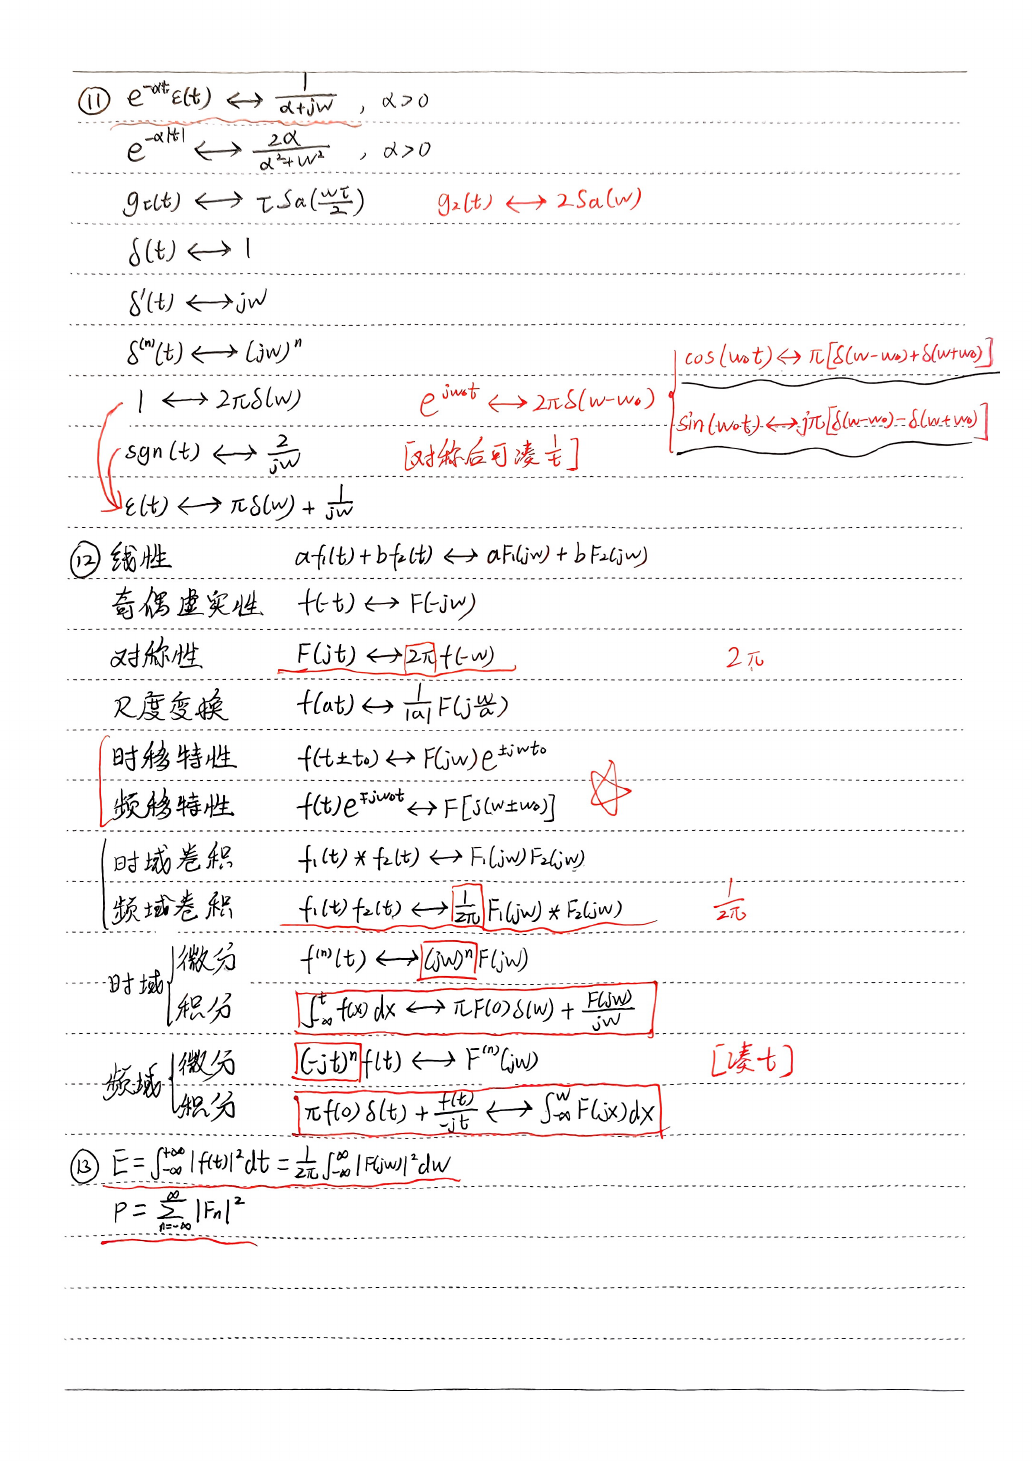 ⑪ e^{-αt}ε(t) ↔ 1/(α+jw) , α>0
e^{-α|t|} ↔ 2α/(α²+w²) , α>0
gτ(t) ↔ τSa(wτ/2) g₂(t) ↔ 2Sa(w)
δ(t) ↔ 1
δ'(t) ↔ jw
δ⁽ⁿ⁾(t) ↔ (jw)ⁿ
cos(w₀t) ↔ π[δ(w-w₀)+δ(w+w₀)]
1 ↔ 2πδ(w) e^{jw₀t} ↔ 2πδ(w-w₀)
sin(w₀t) ↔ jπ[δ(w-w₀)-δ(w+w₀)]
sgn(t) ↔ 2/jw [对称后可凑 1/t]
ε(t) ↔ πδ(w) + 1/jw
⑫ 线性 af₁(t)+bf₂(t) ↔ aF₁(jw)+bF₂(jw)
奇偶虚实性 f(-t) ↔ F(-jw)
对称性 F(jt) ↔ 2π f(-w) 2π
尺度变换 f(at) ↔ 1/|a| F(j w/a)
时移特性 f(t±t₀) ↔ F(jw)e^{±jwt₀}
频移特性 f(t)e^{∓jw₀t} ↔ F[j(w±w₀)] ☆
时域卷积 f₁(t)*f₂(t) ↔ F₁(jw)F₂(jw)
频域卷积 f₁(t)f₂(t) ↔ 1/2π F₁(jw)*F₂(jw) 1/2π
时域 微分 f⁽ⁿ⁾(t) ↔ (jw)ⁿ F(jw)
积分 ∫_{-∞}^{t} f(x)dx ↔ πF(0)δ(w) + F(jw)/jw
频域 微分 (-jt)ⁿ f(t) ↔ F⁽ⁿ⁾(jw) [凑t]
积分 πf(0)δ(t) + f(t)/-jt ↔ ∫_{-∞}^{w} F(jx)dx
⑬ E = ∫_{-∞}^{+∞} |f(t)|²dt = 1/2π ∫_{-∞}^{∞} |F(jw)|²dw
P = Σ_{n=-∞}^{∞} |Fn|²